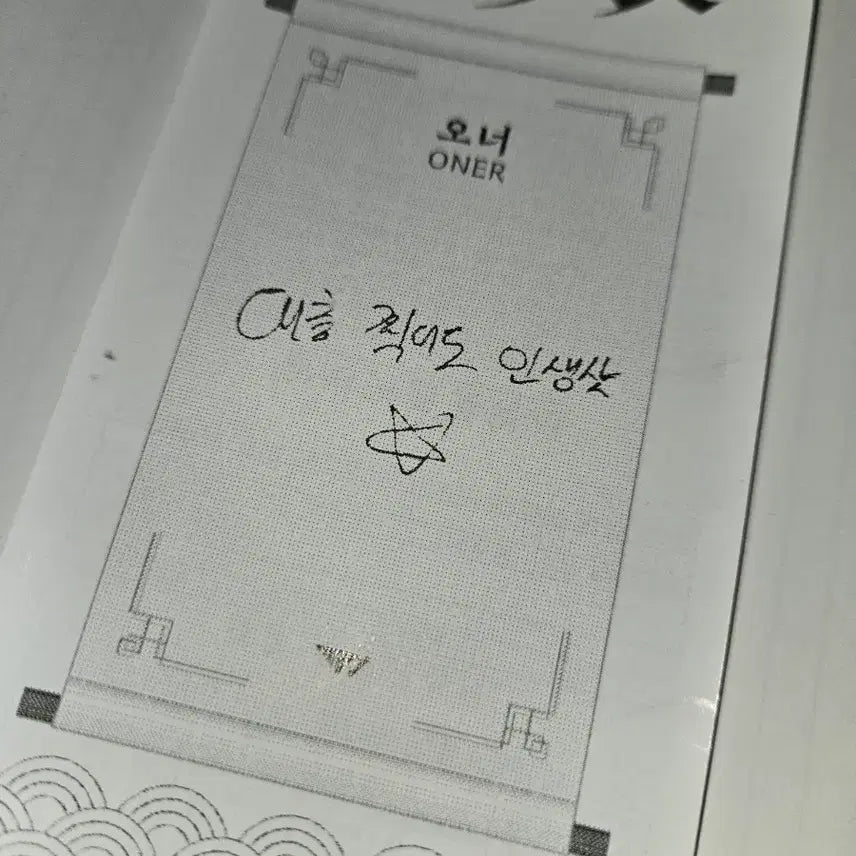 오너
ONER
대충 찍어도 인생샷